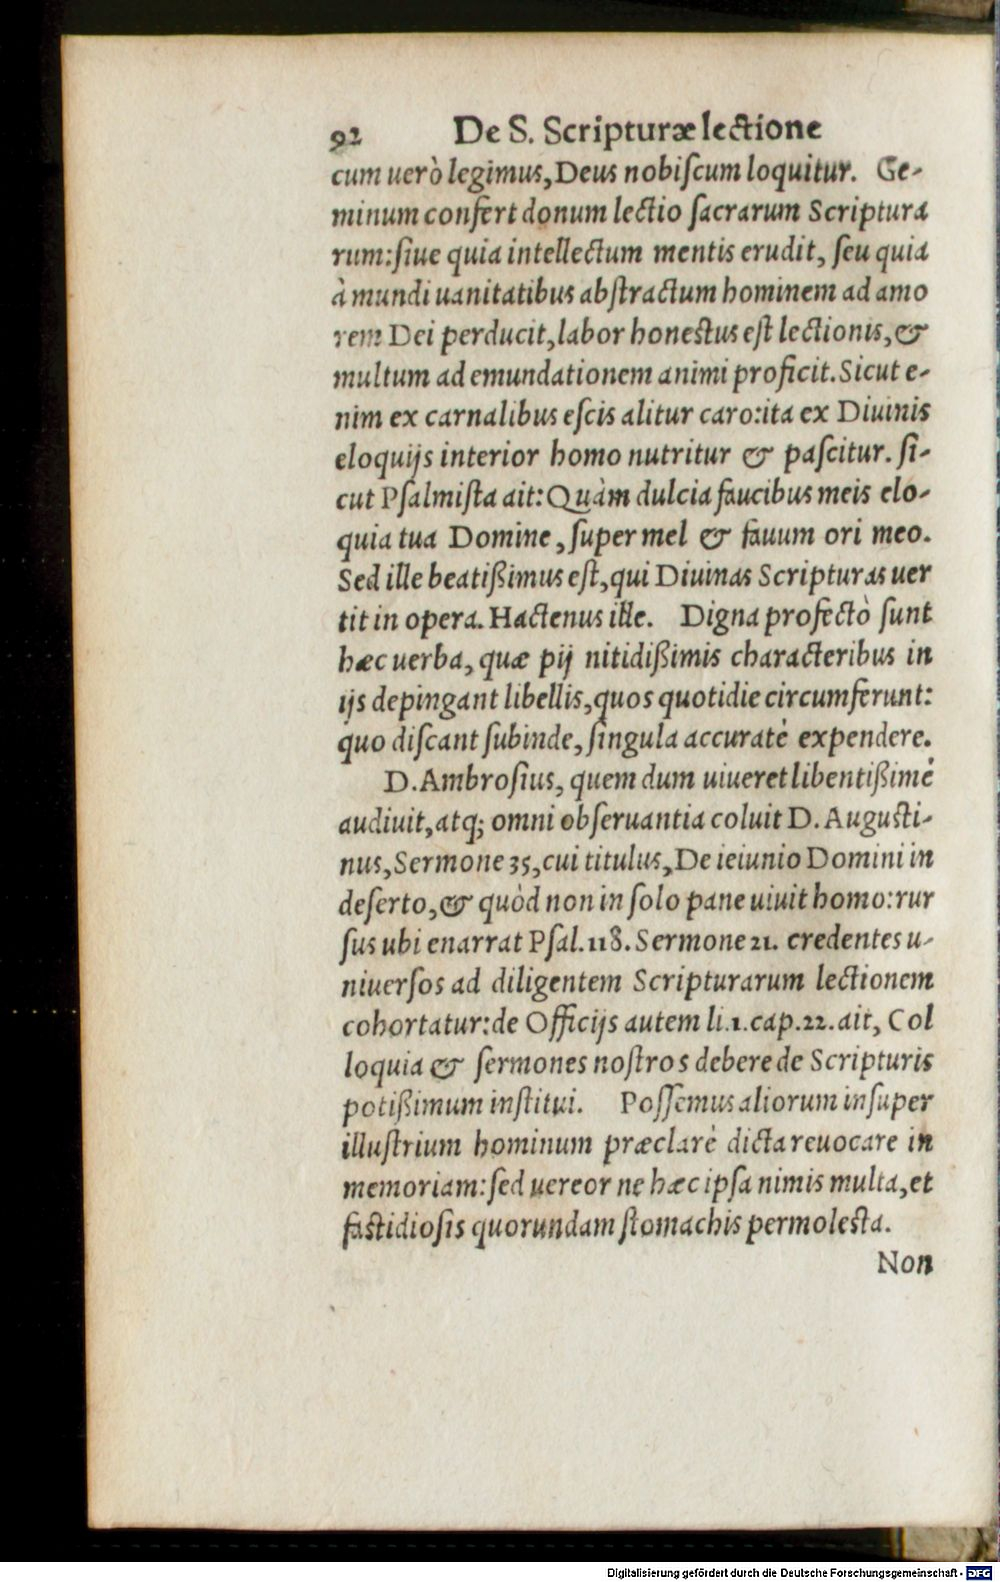 92 De S. Scripturæ lectione
cum uerò legimus, Deus nobiſcum loquitur. Ge-
minum confert donum lectio ſacrarum Scriptura
rum: ſiue quia intellectum mentis erudit, ſeu quia
à mundi uanitatibus abſtractum hominem ad amo
rem Dei perducit, labor honestus eſt lectionis, &
multum ad emundationem animi proficit. Sicut e-
nim ex carnalibus eſcis alitur caro: ita ex Diuinis
eloquijs interior homo nutritur & paſcitur. ſi-
cut Pſalmiſta ait: Quàm dulcia faucibus meis elo-
quia tua Domine, ſuper mel & fauum ori meo.
Sed ille beatißimus eſt, qui Diuinas Scripturas uer
tit in opera. Hactenus ille. Digna profectò ſunt
hæc uerba, quæ pij nitidißimis characteribus in
ijs depingant libellis, quos quotidie circumferunt:
quo diſcant ſubinde, ſingula accuratè expendere.
D. Ambroſius, quem dum uiueret libentißimè
audiuit, atq; omni obſeruantia coluit D. Auguſti-
nus, Sermone 35, cui titulus, De ieiunio Domini in
deſerto, & quòd non in ſolo pane uiuit homo: rur
ſus ubi enarrat Pſal. 118. Sermone 21. credentes u-
niuerſos ad diligentem Scripturarum lectionem
cohortatur: de Officijs autem li. 1. cap. 22. ait, Col
loquia & ſermones noſtros debere de Scripturis
potißimum inſtitui. Poſſemus aliorum inſuper
illuſtrium hominum præclarè dicta reuocare in
memoriam: ſed uereor ne hæc ipſa nimis multa, et
faſtidioſis quorundam ſtomachis permoleſta.
Non
Digitalisierung gefördert durch die Deutsche Forschungsgemeinschaft - DFG